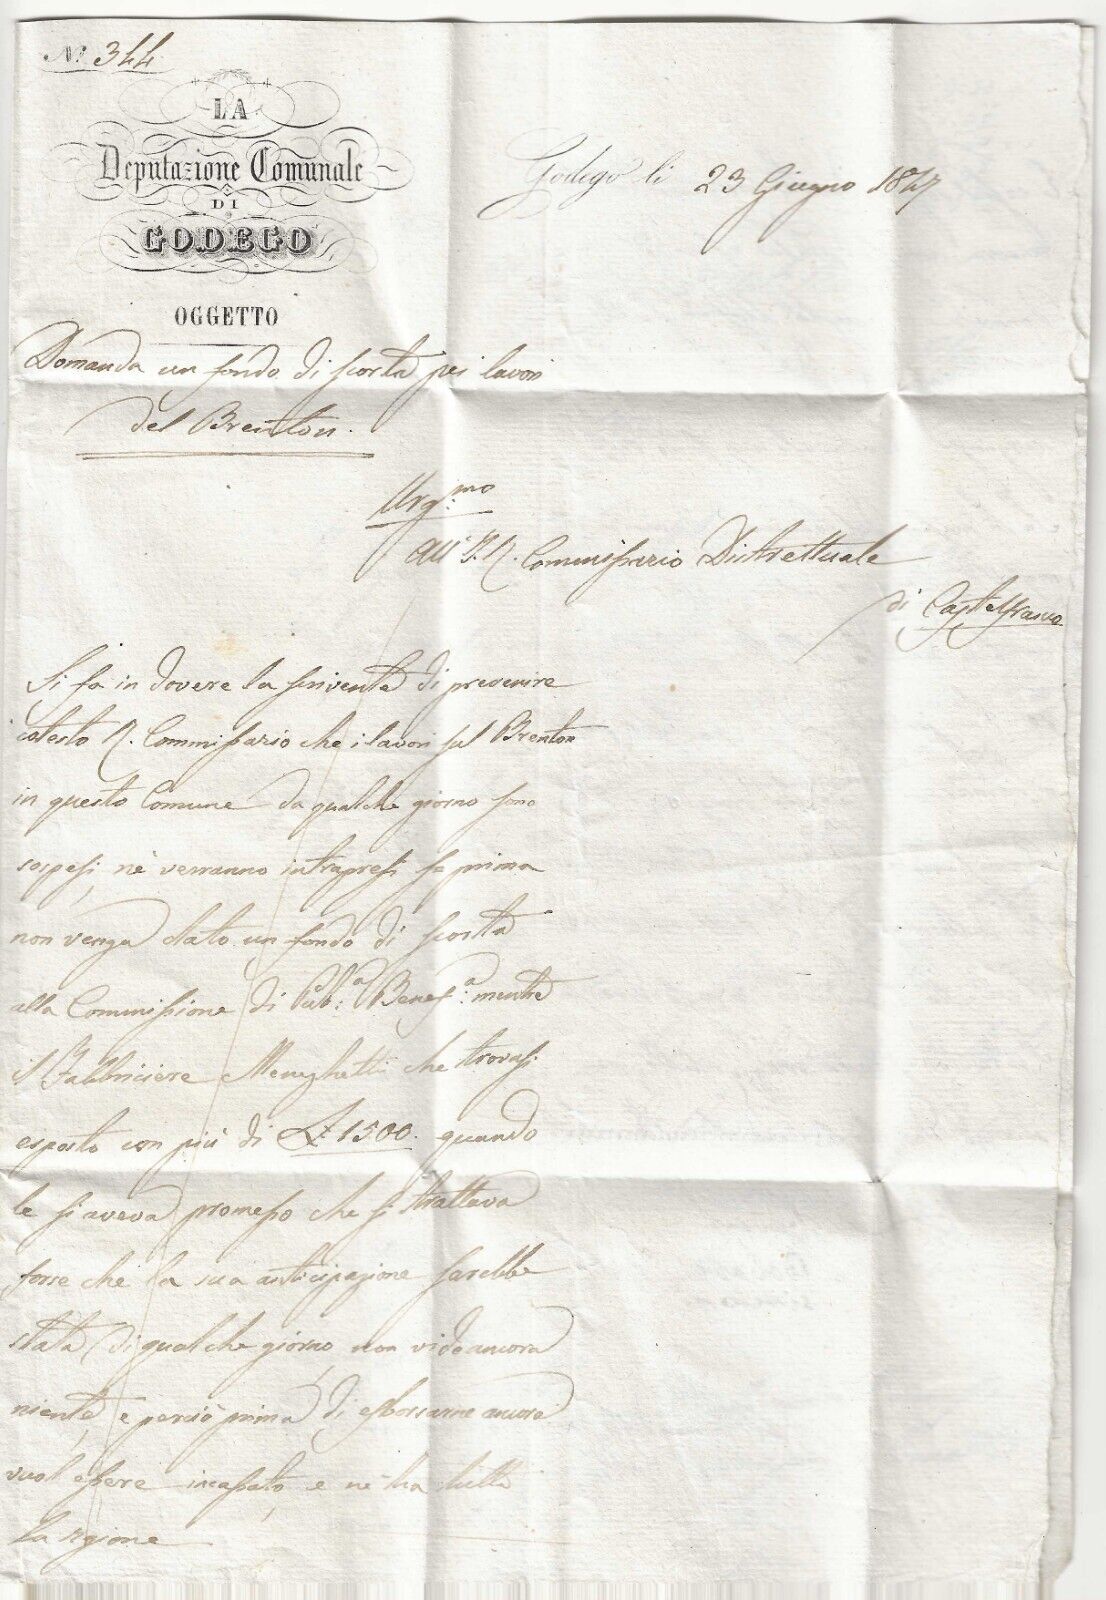 N.° 344
LA
Deputazione Comunale
DI
GODEGO
Godego li 23 Giugno 1847
OGGETTO
Domanda un fondo di scorta pei lavori
del Brenton.
Urg.mo
All' I. R. Commissario Distrettuale
di Castelfranco
Si fa in dovere la scrivente di prevenire
cotesto R. Commissario che i lavori sul Brenton
in questo Comune da qualche giorno sono
sospesi, nè verranno intrapresi se prima
non venga dato un fondo di scorta
alla Commissione di Pub.a Benef.a mentre
il Fabbriciere Meneghetti che trovasi
esposto con più di L. 1500. quando
le si aveva promesso che si trattava
forse che la sua anticipazione sarebbe
stata di qualche giorno, non vide ancora
niente, e perciò prima di esborsarne ancora
vuol essere incassato, e nè ha tutta
la rgione